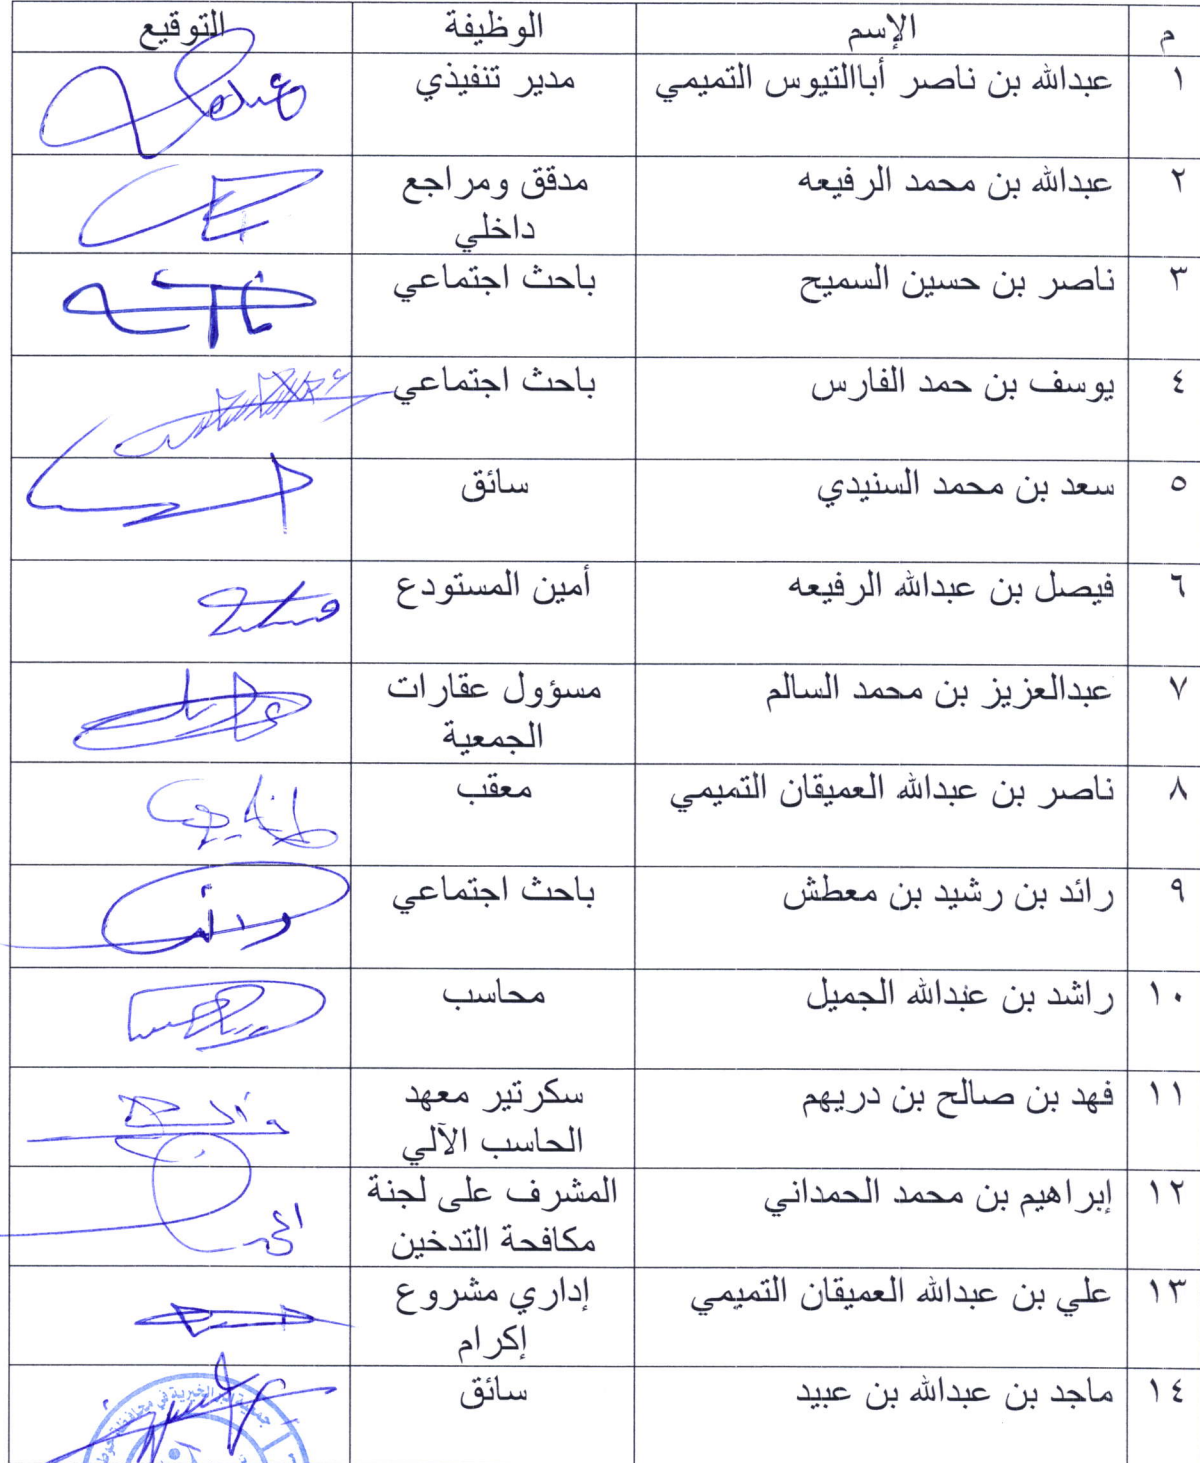 م الإسم الوظيفة التوقيع
١ عبدالله بن ناصر أباالتيوس التميمي مدير تنفيذي
٢ عبدالله بن محمد الرفيعه مدقق ومراجع
داخلي
٣ ناصر بن حسين السميح باحث اجتماعي
٤ يوسف بن حمد الفارس باحث اجتماعي
٥ سعد بن محمد السنيدي سائق
٦ فيصل بن عبدالله الرفيعه أمين المستودع
٧ عبدالعزيز بن محمد السالم مسؤول عقارات
الجمعية
٨ ناصر بن عبدالله العميقان التميمي معقب
٩ رائد بن رشيد بن معطش باحث اجتماعي
١٠ راشد بن عبدالله الجميل محاسب
١١ فهد بن صالح بن دريهم سكرتير معهد
الحاسب الآلي
١٢ إبراهيم بن محمد الحمداني المشرف على لجنة
مكافحة التدخين
١٣ علي بن عبدالله العميقان التميمي إداري مشروع
إكرام
١٤ ماجد بن عبدالله بن عبيد سائق
جمعية البر الخيرية في محافظة